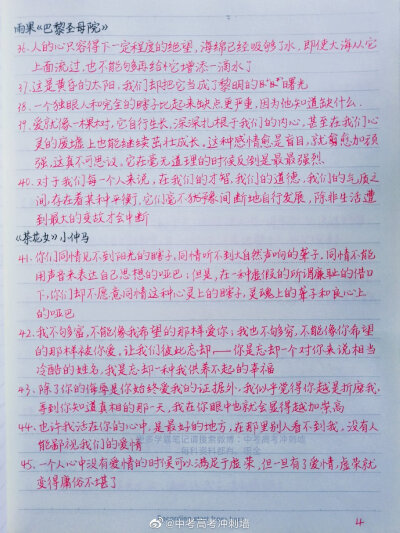 雨果《巴黎圣母院》
36.人的心只容得下一定程度的绝望,海绵已经吸够了水,即使大海从它
上面流过,也不能够再给它增添一滴水了
37.这是黄昏的太阳,我们却把它当成了黎明的曙光
38.一个独眼人和完全的瞎子比起来缺点更严重,因为他知道缺什么.
39.爱就像一棵树,它自行生长,深深扎根于我们的内心,甚至在我们心
灵的废墟上也能继续茁壮成长,这种感情愈是盲目,就愈加顽
强,这真不可思议,它在毫无道理的时候反倒是最最强烈
40.对于我们每一个人来说,在我们的才智,我们的道德,我们的气质之
间存在着某种平衡,它们毫不犹豫间断地自行发展,除非生活遭
到最大的变故才会中断
《茶花女》小仲马
41.你们同情见不到阳光的瞎子,同情听不到大自然声响的聋子,同情不能
用声音来表达自己思想的哑巴;但是,在一种虚假的所谓廉耻的借口
下,你们却不愿意同情这种心灵上的瞎子,灵魂上的聋子和良心上
的哑巴
42.我不够富,不能像我希望的那样爱你;我也不够穷,不能像你希望
的那样被你爱,让我们彼此忘却——你是忘却一个对你来说相当
冷酷的姓名,我是忘却一种我供养不起的幸福
43.除了你的侮辱是你始终爱我的证据外,我似乎觉得你越是折磨我,
等到你知道真相的那一天,我在你眼中也就会显得越加崇高
44.也许我活在你的心中,是最好的地方,在那里别人看不到我,没有人
能鄙视我们的爱情
45.一个人心中没有爱情的时候可以满足于虚荣,但一旦有了爱情,虚荣就
变得庸俗不堪了
4
@中考高考冲刺墙